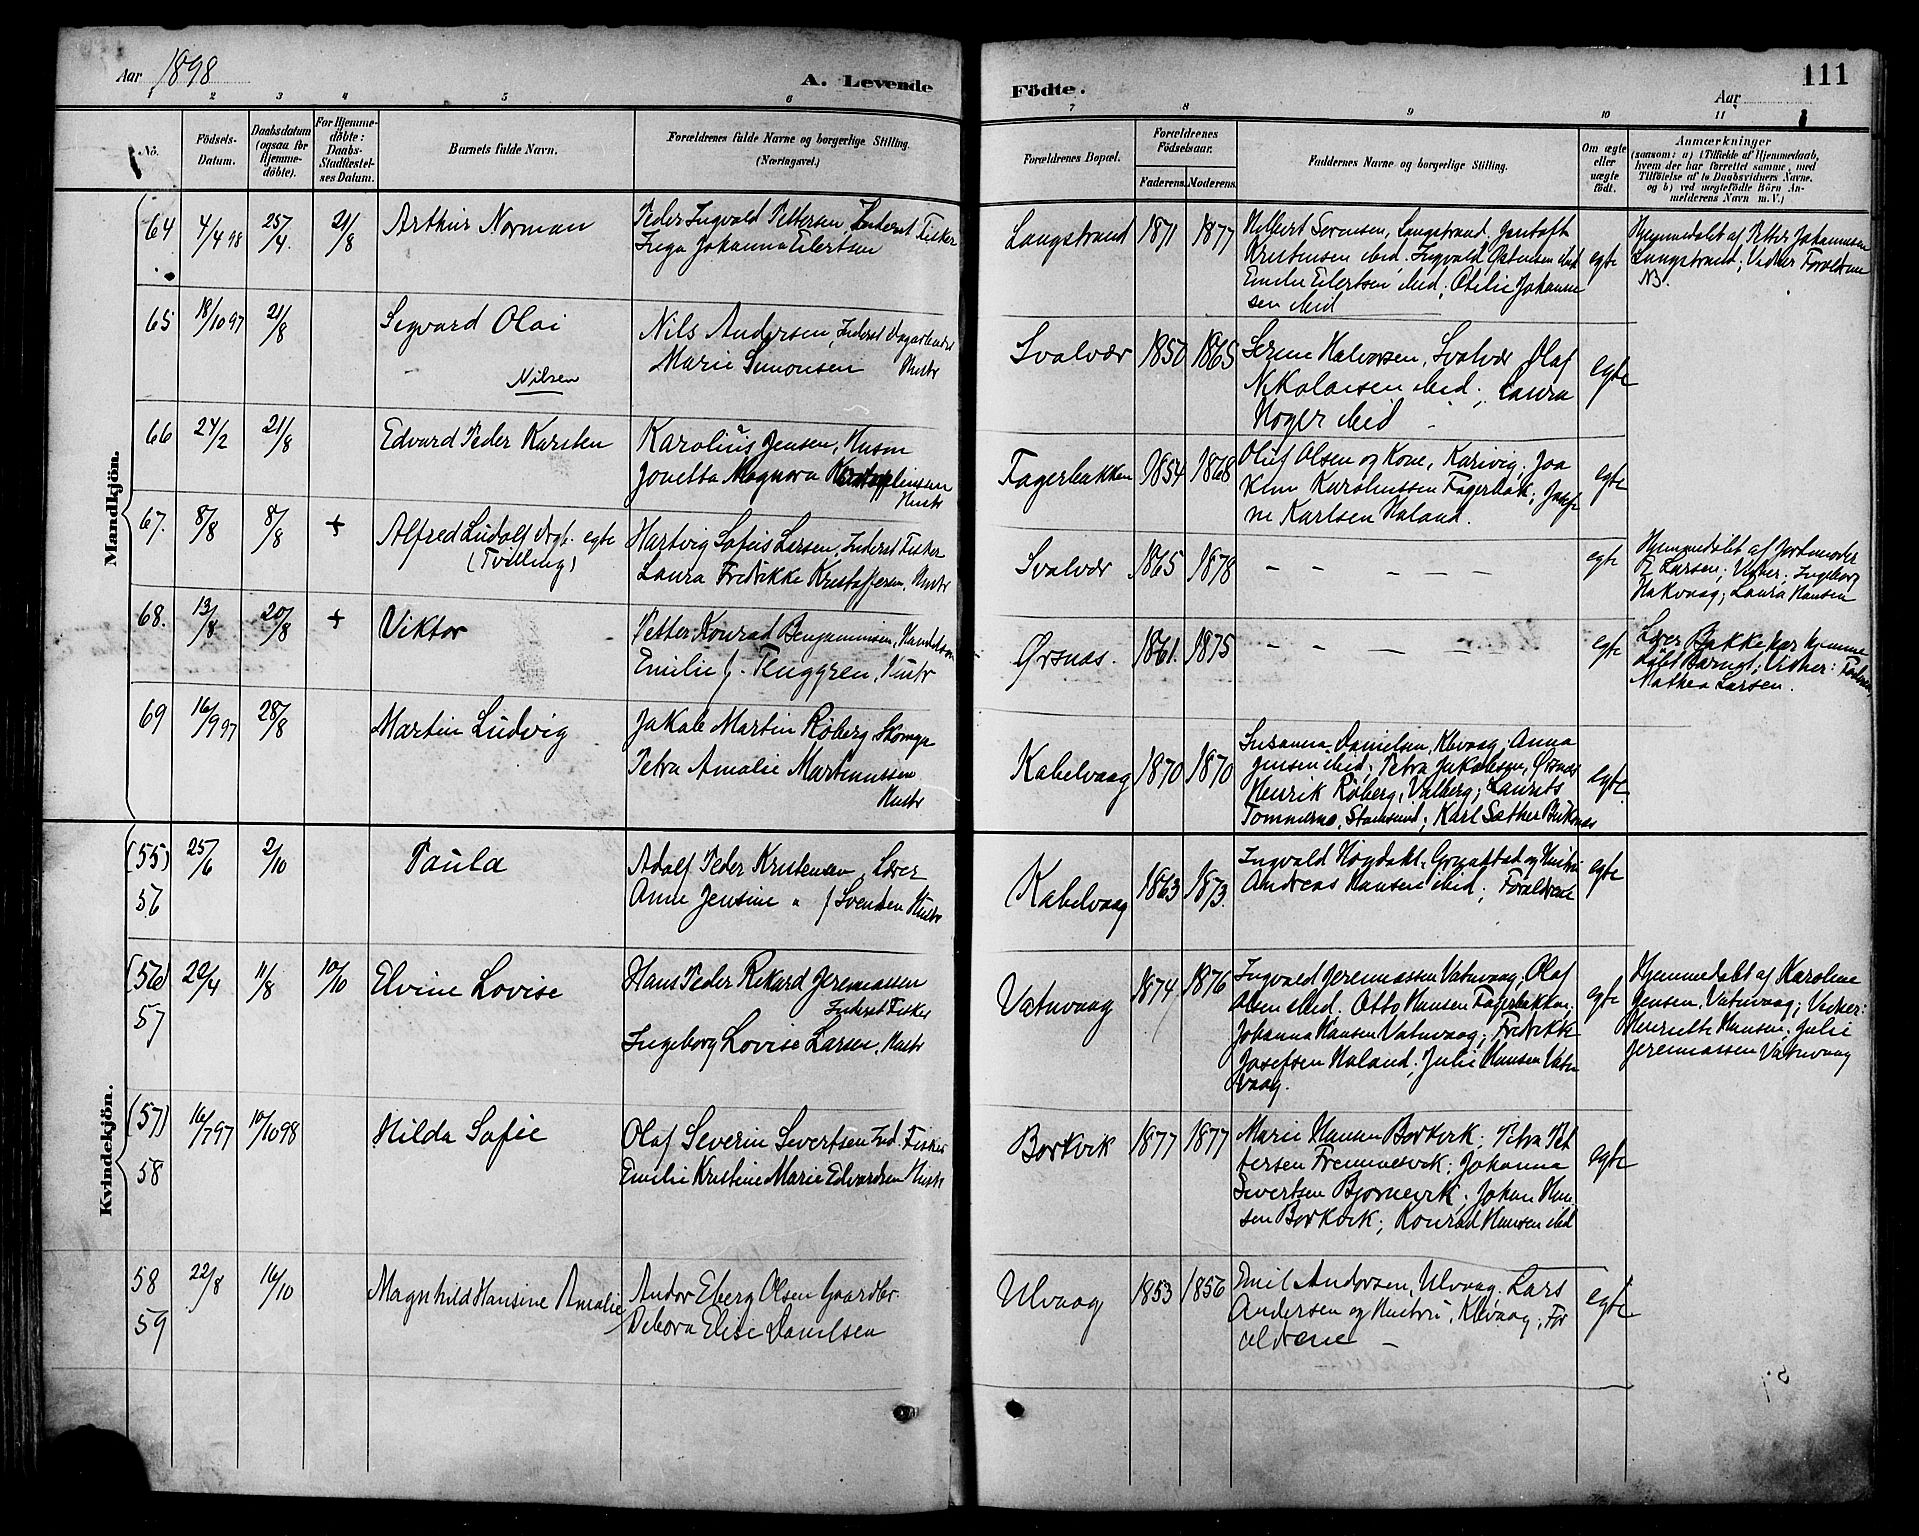 Aar 1898
A. Levende
Födte.
Aar
111
1 2 3 4 5 6 7 8 9 10 11
No.
Födsels-Datum.
Daabsdatum (ogsaa for Hjemmedöbte).
For Hjemmedöbte: Daabs-Stadfæstelses Datum.
Barnets fulde Navn.
Forældrenes fulde Navne og borgerlige Stilling. (Næringsvei.)
Forældrenes Bopæl.
Forældrenes Födselsaar.
Faderens. Moderens.
Faddernes Navne og borgerlige Stilling.
Om ægte eller uægte födt.
Anmærkninger
(saasom: a) i Tilfælde af Hjemmedaab, hvem der har forrettet samme, med Tilföielse af to Daabsvidners Navne, og b) ved uægtefödte Börn Anmelderens Navn m. V.)
Mandkjön.
64 4/4 98 25/4. 21/8 Arthur Norman
Peder Ingvald Pettersen, Inderst Fisker
Inga Johanna Eilertsen
Langstrand 1871 1877
Hilbert Sørensen, Langstrand,
Kristensen ibid. Ingvald ibid
Emilie Eilertsen ibid; Otilie Johanne
sen ibid
egte
Hjemmedøbt af Petter Johannesen
Langstrand; Vidner Forældrene
NB.
65 18/10 97 21/8 Sigvard Olai
Nilsen
Nils Andersen, Inderst Dagarbeider
Marie Simonsen Hustr
Svolvær 1850 1865
Serine Halvorsen, Svolvær Olaf
Nikolaisen ibid; Laura
Hoger ibid
egte
66 24/2 21/8 Edvard Peder Karsten
Karolius Jensen, Husm
Jonetta Magnora
Hustr
Fagerbakken 1854 1868
Oluf Olsen og Kone, Karivig. Joa
kim Karoliussen Fagerbak; Josefi
ne Karlsen Holand.
egte
67. 8/8 8/8 + Alfred Ludolf egte
(Tvilling)
Hartvig Sofus Larsen, Inderst Fisker
Laura Fredrikke Kristoffersen, Hustr
Svolvær 1865 1878
– – – – –
egte
Hjemmedøbt af Jordmoder
Larsen; Vidner; Ingeborg
Hakvaag; Laura Hansen
68. 13/8 20/8 + Viktor
Petter Konrad Benjaminsen, Handelsm
Emilie f. Tenggren, Hustr
Ørsnæs. 1861. 1875
– – – – –
egte
Lærer Bakke har hjemme
døbt Barnet; Vidner: Faderen,
Mathea Larsen.
69 16/9 97 28/8 Martin Ludvig
Jakob Martin Røberg Skomgr
Petra Amalie Martinussen
Hustr
Kabelvaag 1870 1870
Susanna Danielsen, Klevaag. Anna
Jensen ibid; Petra Jakobsen, Ørsnæs
Henrik Røberg, Valberg; Laurits
Tommernæs, Stamsund; Karl Sæther
egte.
Kvindekjön.
(55) 56 25/6 2/10 Paula
Adolf Peder Kristensen Lærer
Anne Jensine " f Svendsen Hustr
Kabelvaag 1863 1873.
Ingvald Høgdahl, og Hustru
Andreas Hansen ibid; Forældrene
egte
(56) 57 22/4 11/8 10/10 Elvine Lovise
Hans Peder Rikard Jeremiassen
Inderst Fisker
Ingeborg Lovise Larsen, Hustr
Vatnvaag 1874 1876
Ingvald Jeremiassen Vatnvaag; Olaf
Olsen ibid. Otto Hansen Fagerbakken;
Johanna Hansen Vatnvaag; Fredrikke
Josefsen Holand; Julie Hansen Vatn
vaag.
egte
Hjemmedøbt af Karoline
Jensen, Vatnvaag; Vidner:
Henriette Hansen; Julie
Jeremiassen Vatnvaag
(57) 58 16/7 97 10/10 98 Hilda Sofie
Olaf Severin Sivertsen Ind. Fisker
Emilie Kristine Marie Edvardsen Hustr
Borkvik 1877 1877
Marie Hansen Borkvik; Petra Pet
tersen Fremnesvik; Johanna
Sivertsen Bjørnevik; Johan Han
sen Borkvik; Konrad Hansen ibid
egte
58 59 22/8 16/10 Magnhild Hansine Amalie
Andor Eberg Olsen Gaardbr.
Debora Elise Danielsen
Ulvaag 1853 1856
Emil Andorsen, Ulvaag. Lars
Andersen og Hustru, Klevaag; For
ældrene –
egte